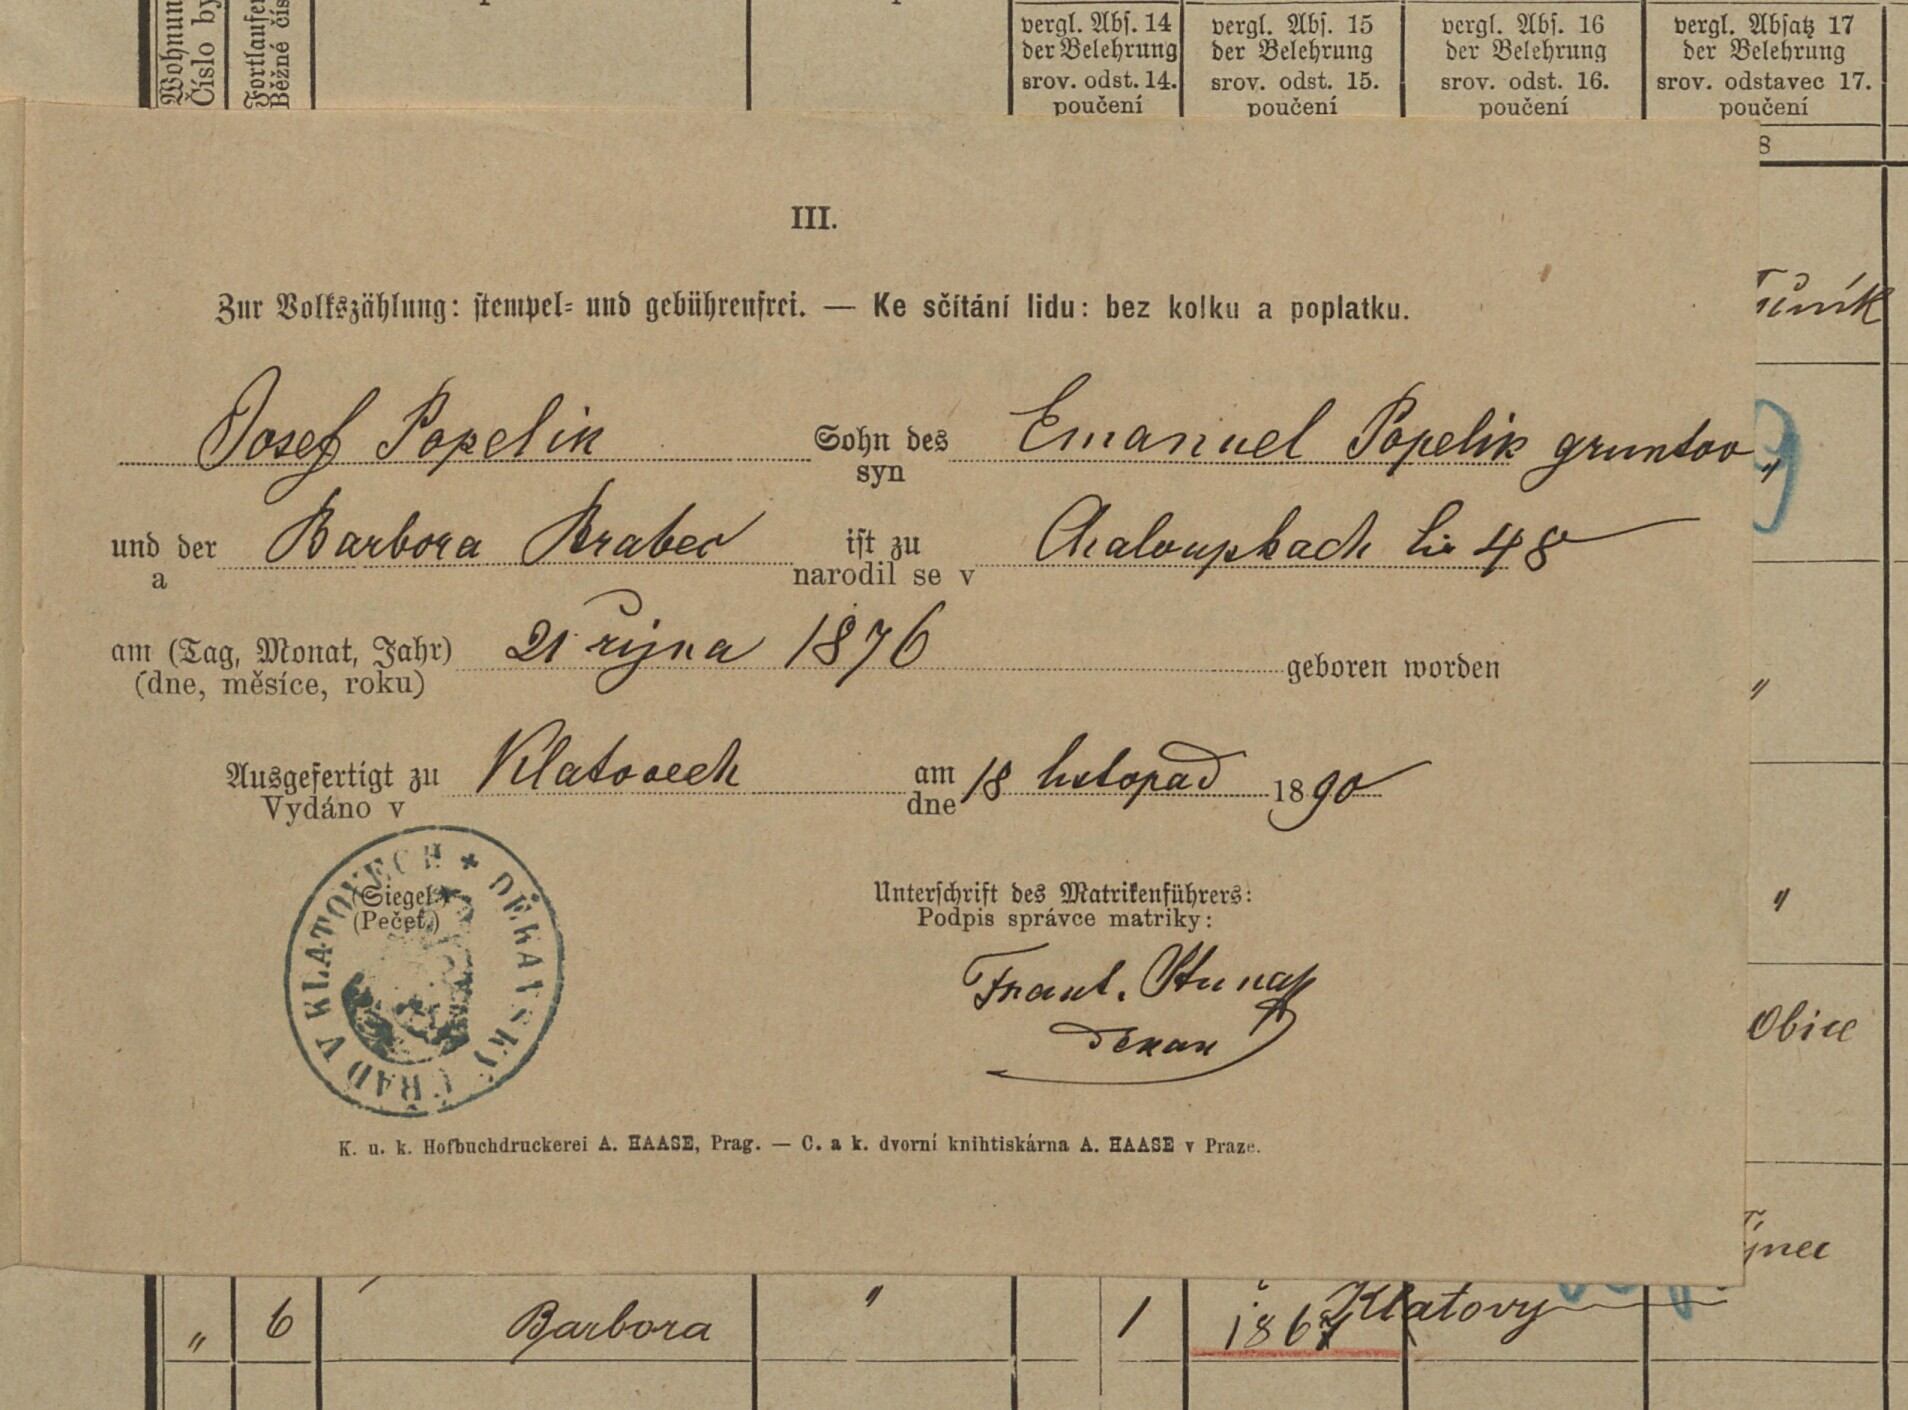 Číslo by
vergl. Abs. 14
der Belehrung
srov. odst. 14.
poučení
vergl. Abs. 15
der Belehrung
srov. odst. 15.
poučení
vergl. Abs. 16
der Belehrung
srov. odst. 16.
poučení
vergl. Absatz 17
der Belehrung
srov. odstavec 17.
poučení
8
III.
Zur Volkszählung: stempel- und gebührenfrei. — Ke sčítání lidu: bez kolku a poplatku.
Josef Popelik Sohn des Emanuel Popelik
syn
und der Barbora Brabec ist zu Chaloupkach 48
a narodil se v
am (Tag, Monat, Jahr) 21 října 1876 geboren worden
(dne, měsíce, roku)
Ausgefertigt zu Klatovech am 18 listopad 1890
Vydáno v dne
(Siegel)
(Pečeť.)
DĚKANSKÝ ÚŘAD V KLATOVECH
Unterschrift des Matrikenführers:
Podpis správce matriky:
Frant.
Děkan
K. u. k. Hofbuchdruckerei A. HAASE, Prag. — C. a k. dvorní knihtiskárna A. HAASE v Praze.
" 6 Barbora " 1 Klatovy